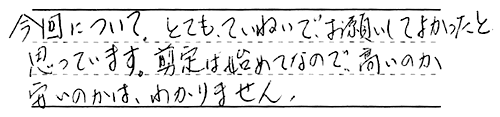 今回について、とても、ていねいで、お願いしてよかったと
思っています。剪定は始めてなので、高いのか
安いのかは、わかりません。